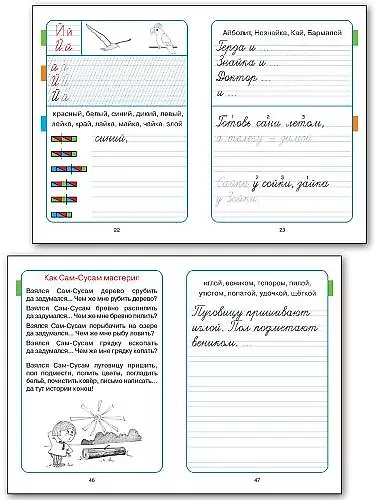 Й й
Й й
й
й
Й й
красный, белый, синий, дикий, левый,
лейка, край, лайка, майка, чайка, злой
синий,
22
Айболит, Незнайка, Кай, Бармалей
Герда и ...
Знайка и ...
Доктор ...
и ...
1 2 3
Готовь сани летом,
а телегу – зимой.
1 2 3
Сайка у сойки, зайка
у Зойки.
23
Как Сам-Сусам мастерил
Взялся Сам-Сусам дерево срубить
да задумался... Чем же мне рубить дерево?
Взялся Сам-Сусам бревно распилить
да задумался... Чем же мне бревно пилить?
Взялся Сам-Сусам порыбачить на озере
да задумался... Чем же мне рыбу ловить?
Взялся Сам-Сусам грядку вскопать
да задумался... Чем же мне грядку копать?
Взялся Сам-Сусам пуговицу пришить,
пол подмести, полить цветы, погладить
бельё, почистить ковёр, письмо написать...
да тут истории конец!
46
иглой, веником, топором, пилой,
утюгом, лопатой, удочкой, щёткой
Пуговицу пришивают
иглой. Пол подметают
веником. ...
47